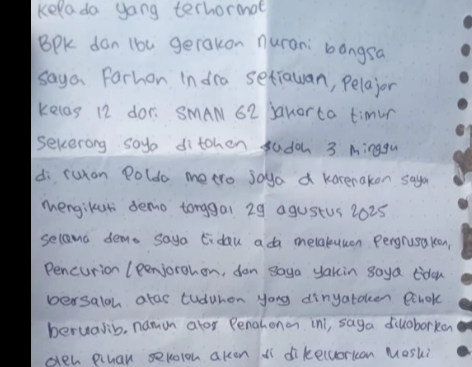 kepada yang terhormat
BPK dan Ibu gerakan nurani bangsa
saya Farhan Indra setiawan, Pelajar
kelas 12 dari SMAN 62 jakarta timur
sekarang saya di tahan sudah 3 Minggu
di rutan Polda metro jaya d karenakan saya
mengikuti demo tanggal 29 agustus 2025
selama demo saya tidak ada melakukan Pengrusakan,
Pencurian / Penjarahan, dan saya yakin saya tidak
bersalah atas tuduhan yang dinyatakan Pihak
berwajib. namun atas Penahanan ini, saya dikabarkan
oleh Pihak sekolah akan di dikeluarkan Meski